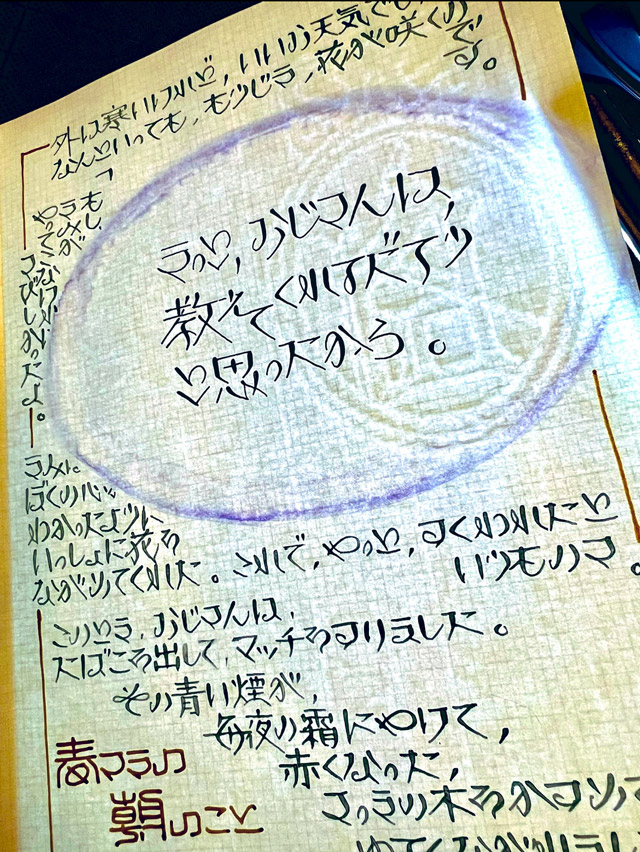 外は寒いけれど、いいお天気で
なんといっても、もうじき、花が咲くの
です。
「もし、
きみが
やってこなければ
さびしかったよ。
きっと、おじさんは、
教えてくれ
と思ったから。
きみは
ぼくの心が
わかったように
いっしょに花を
ながめてくれた。これで、やっと、すくわれたと
いうものさ。
このとき、おじさんは、
たばこを出して、マッチをすりました。
その青い煙が、
毎夜の霜にやけて、
赤くなった、
さっきの木をかす
春さきの
朝のこと